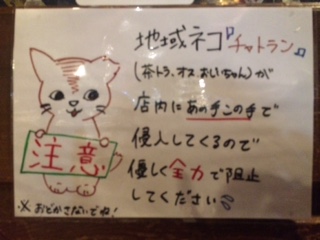 地域ネコ『チャトラン』
(茶トラ、オス、おいちゃん)が
店内にあの手この手で
侵入してくるので
優しく全力で阻止
してください
注意
※おどかさないでね!